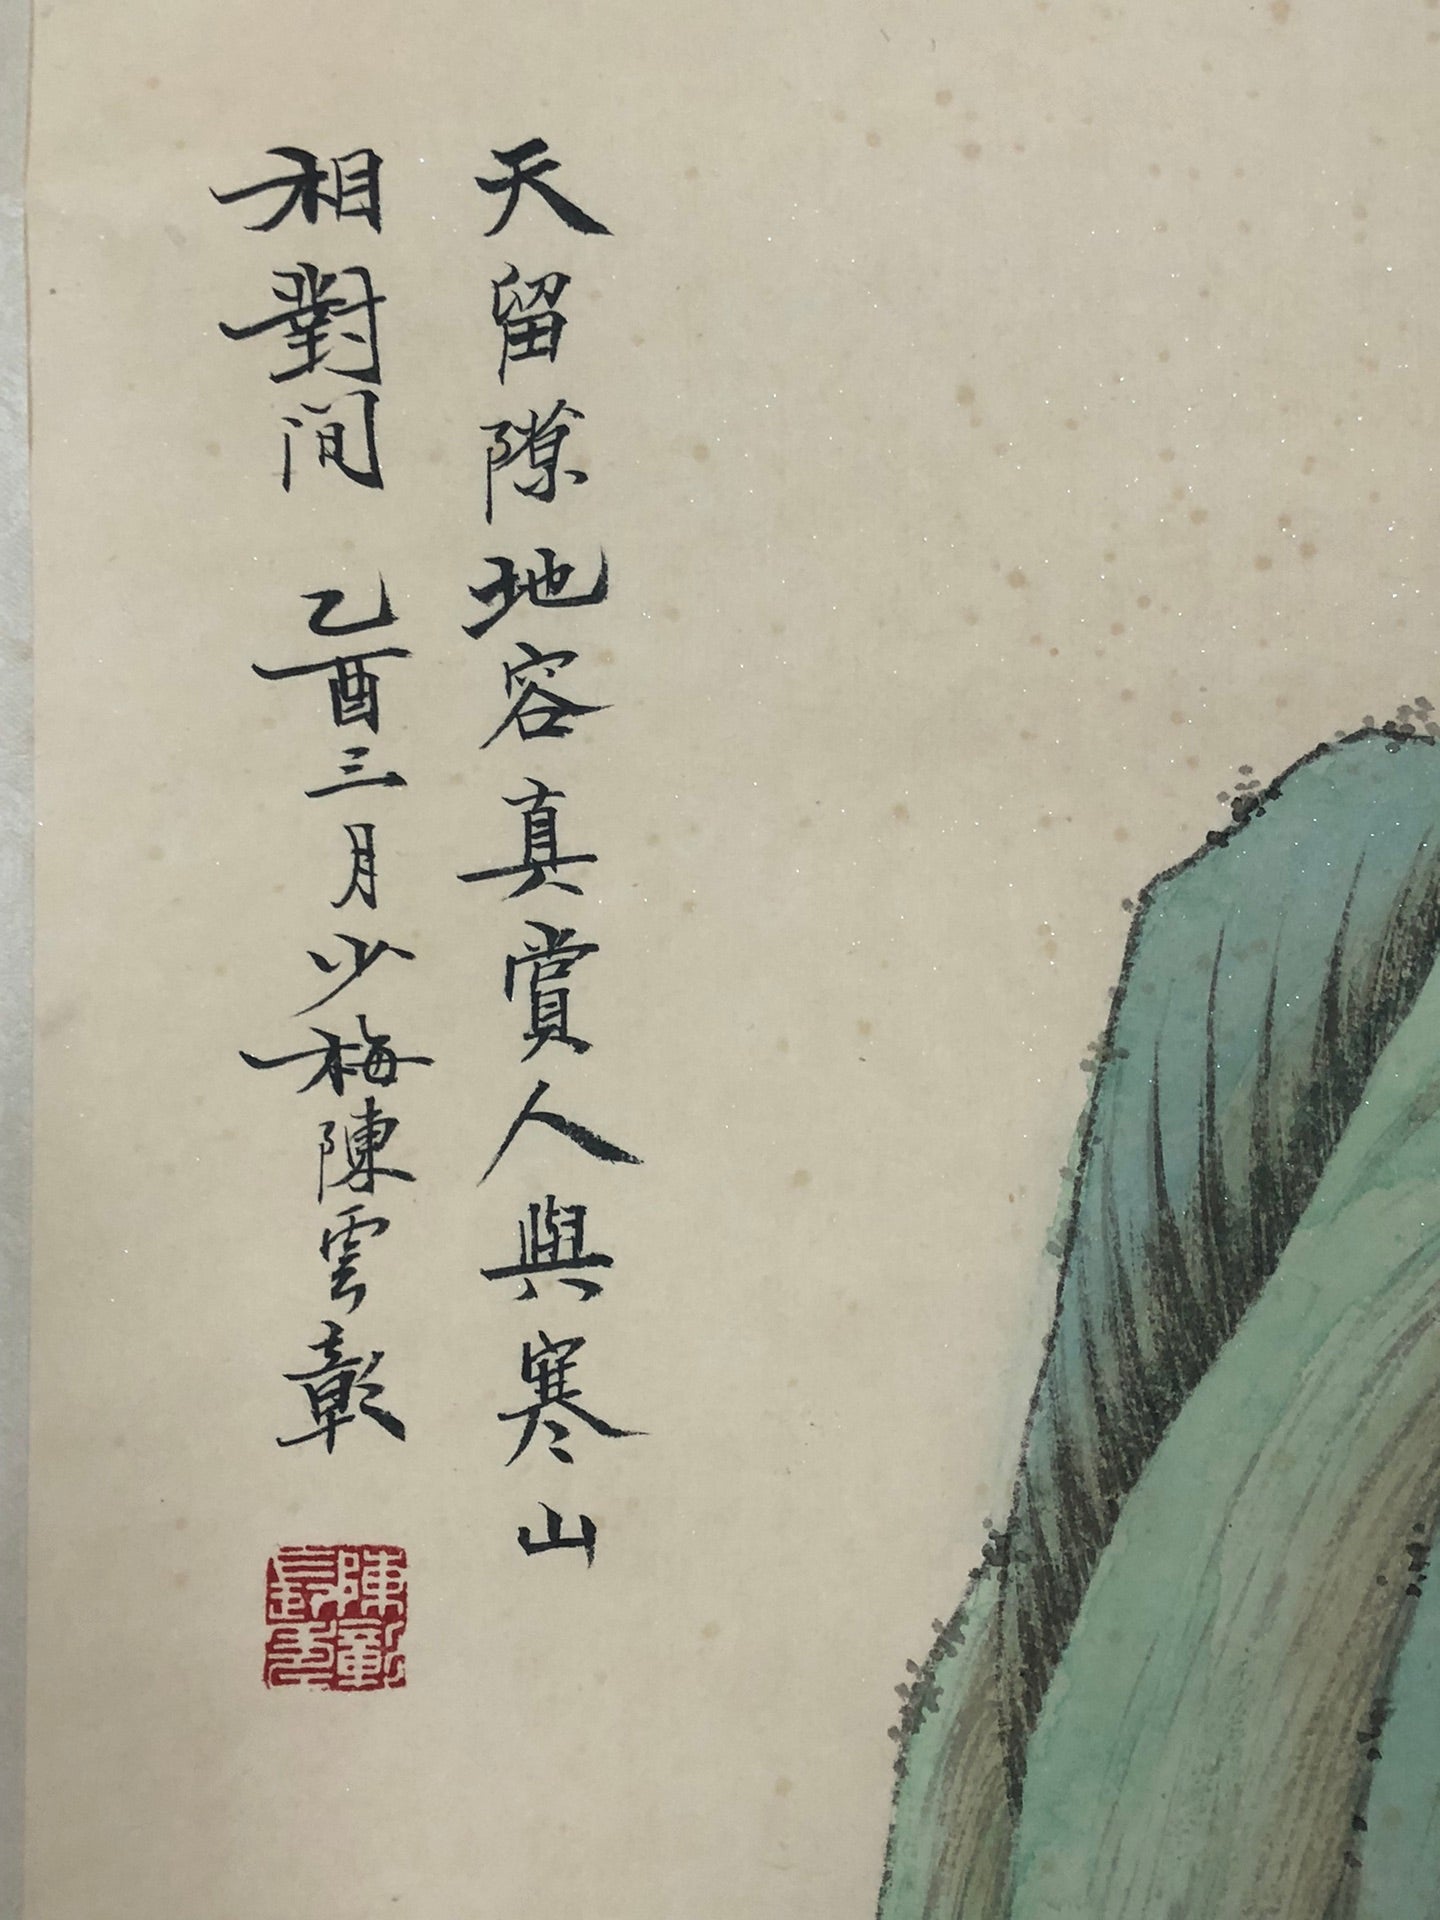 天留隙地容真賞人與寒山
相對間 乙酉三月少梅陳雲彰
陳彰